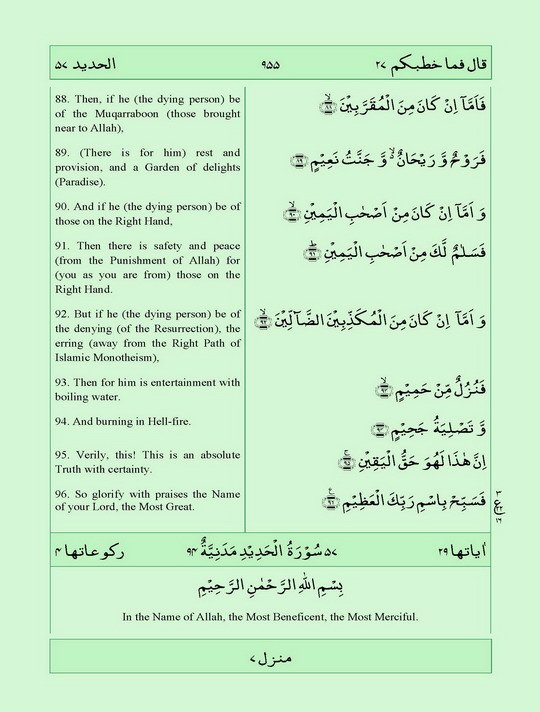 الحديد ۵۷ ۹۵۵ قال فما خطبكم ۲۷
88. Then, if he (the dying person) be
of the Muqarraboon (those brought
near to Allah),
فَاَمَّآ اِنْ كَانَ مِنَ الْمُقَرَّبِيْنَ ۙ﴿۸۸﴾
89. (There is for him) rest and
provision, and a Garden of delights
(Paradise).
فَرَوْحٌ وَّ رَيْحَانٌ ۙ۬ وَّ جَنَّتُ نَعِيْمٍ ﴿۸۹﴾
90. And if he (the dying person) be of
those on the Right Hand,
وَ اَمَّآ اِنْ كَانَ مِنْ اَصْحٰبِ الْيَمِيْنِ ۙ﴿۹۰﴾
91. Then there is safety and peace
(from the Punishment of Allah) for
(you as you are from) those on the
Right Hand.
فَسَلٰمٌ لَّكَ مِنْ اَصْحٰبِ الْيَمِيْنِ ؕ﴿۹۱﴾
92. But if he (the dying person) be of
the denying (of the Resurrection), the
erring (away from the Right Path of
Islamic Monotheism),
وَ اَمَّآ اِنْ كَانَ مِنَ الْمُكَذِّبِيْنَ الضَّآلِّيْنَ ۙ﴿۹۲﴾
93. Then for him is entertainment with
boiling water.
فَنُزُلٌ مِّنْ حَمِيْمٍ ۙ﴿۹۳﴾
94. And burning in Hell-fire.
وَّ تَصْلِيَةُ جَحِيْمٍ ﴿۹۴﴾
95. Verily, this! This is an absolute
Truth with certainty.
اِنَّ هٰذَا لَهُوَ حَقُّ الْيَقِيْنِ ۚ﴿۹۵﴾
96. So glorify with praises the Name
of your Lord, the Most Great.
فَسَبِّحْ بِاسْمِ رَبِّكَ الْعَظِيْمِ ﴿۹۶﴾
۳
ع
۲۲
۱۶
اٰياتها ۲۹ ۵۷ سُوْرَةُ الْحَدِيْدِ مَدَنِيَّةٌ ۹۴ ركوعاتها ۴
بِسْمِ اللّٰهِ الرَّحْمٰنِ الرَّحِيْمِ
In the Name of Allah, the Most Beneficent, the Most Merciful.
منزل ۷